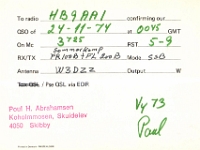 To radio HB9AA1 confirming our
QSO of 24-11-74 at 0045 GMT
On Mc 3785 RST 5-9
Sommerkamp
RX/TX FR100B+FL200B Mode SSB
Antenna W3DZZ Output W
Tnx QSL / Pse QSL via EDR
Vy 73
Poul H. Abrahamsen
Koholmmosen, Skuldelev
4050 Skibby
Paul